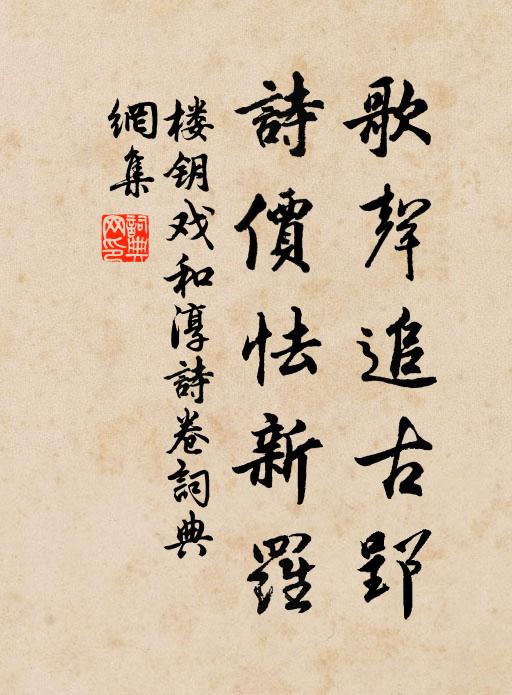 歌聲追古郢
詩價怯新羅
楼钥戏和淳詩卷詞典
網集
詞典
网印